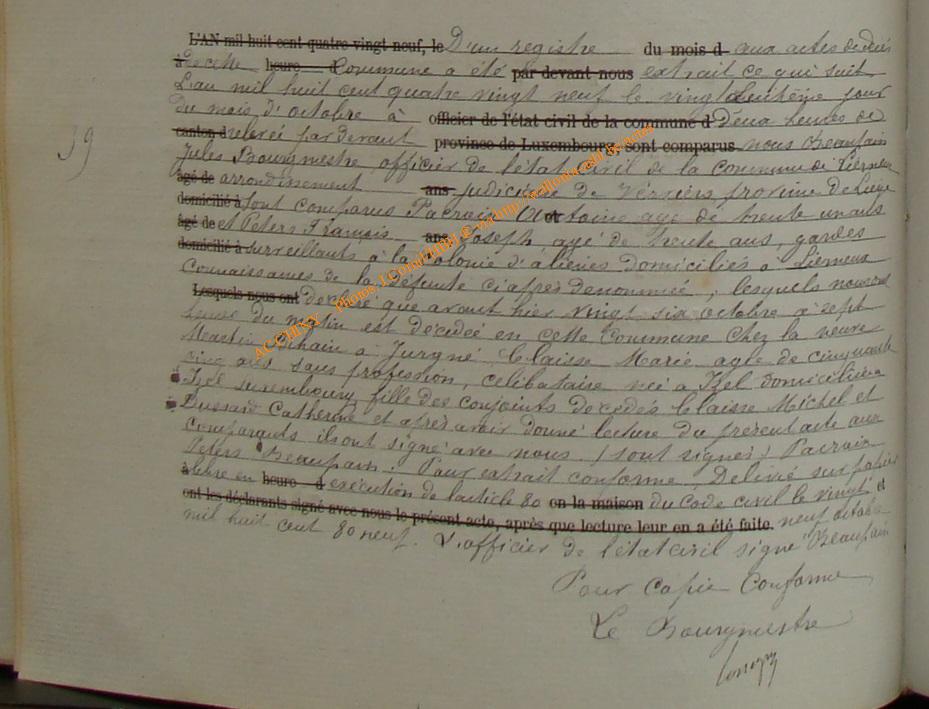 L'AN mil huit cent quatre vingt neuf, le D'un registre du mois d aux actes de décès
à de cette heure d commune a été par devant nous extrait ce qui suit
L'an mil huit cent quatre vingt neuf le vingt huitième jour
du mois d'octobre à officier de l'état civil de la commune d Deux heures de
canton d relevée pardevant province de Luxembourg sont comparus nous Beaupain
39
Jules Bourgmestre, officier de l'état civil de la Commune de Lierneux
âgé de arrondissement ans judiciaire de Verviers province de Liége
domicilié à sont comparus Pacrain Antoine agé de trente un ans
âgé de et Peters François ans Joseph, agé de trente ans, gardes
domicilié à surveillants à la Colonie d'aliénés domiciliés à Lierneux
Connaissances de la défunte ci après dénommée, lesquels nous ont
Lesquels nous ont déclaré que avant hier vingt six octobre à sept
heures du matin est décédée en cette Commune chez la veuve
Martin Jehain à Jurgné, Claisse Marie agée de cinquante
cinq ans sans profession, célibataire née à Izel domiciliée
à Izel Luxembourg, fille des conjoints décédés Claisse Michel et
Dussard Catherine et après avoir donné lecture du présent acte aux
Comparants ils ont signé avec nous. (sont signés) Pacrain
Peters Beaupain. Pour extrait conforme, Délivré sur papier
à libre en heure d exécution de l'article 80 en la maison du code civil le vingt et
ont les déclarants signé avec nous le présent acte, après que lecture leur en a été faite. neuf octobre
mil huit cent 80 neuf. L'officier de l'état civil signé Beaupain
Pour Copie Conforme
Le Bourgmestre